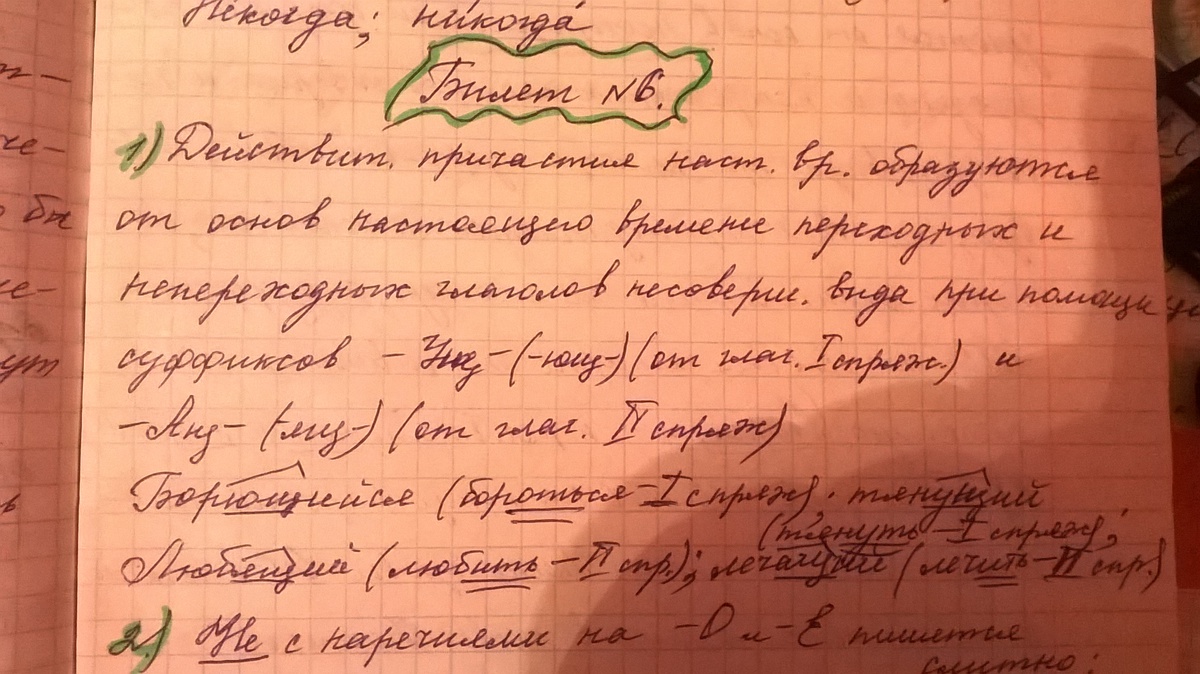 Некогда; никогда
Билет №6.
1) Действит. причастия наст. вр. образуются
от основ настоящего времени переходных и
непереходных глаголов несоверш. вида при помощи
суффиксов -Ущ- (-ющ-) (от глаг. I спряж.) и
-Ащ- (-ящ-) (от глаг. II спряж)
Борющийся (бороться - I спряж), тянущий
(тянуть - I спряж);
Любящий (любить - II спр.); лечащий (лечить - II спр.)
2) Не с наречиями на -О и -Е пишется
слитно: